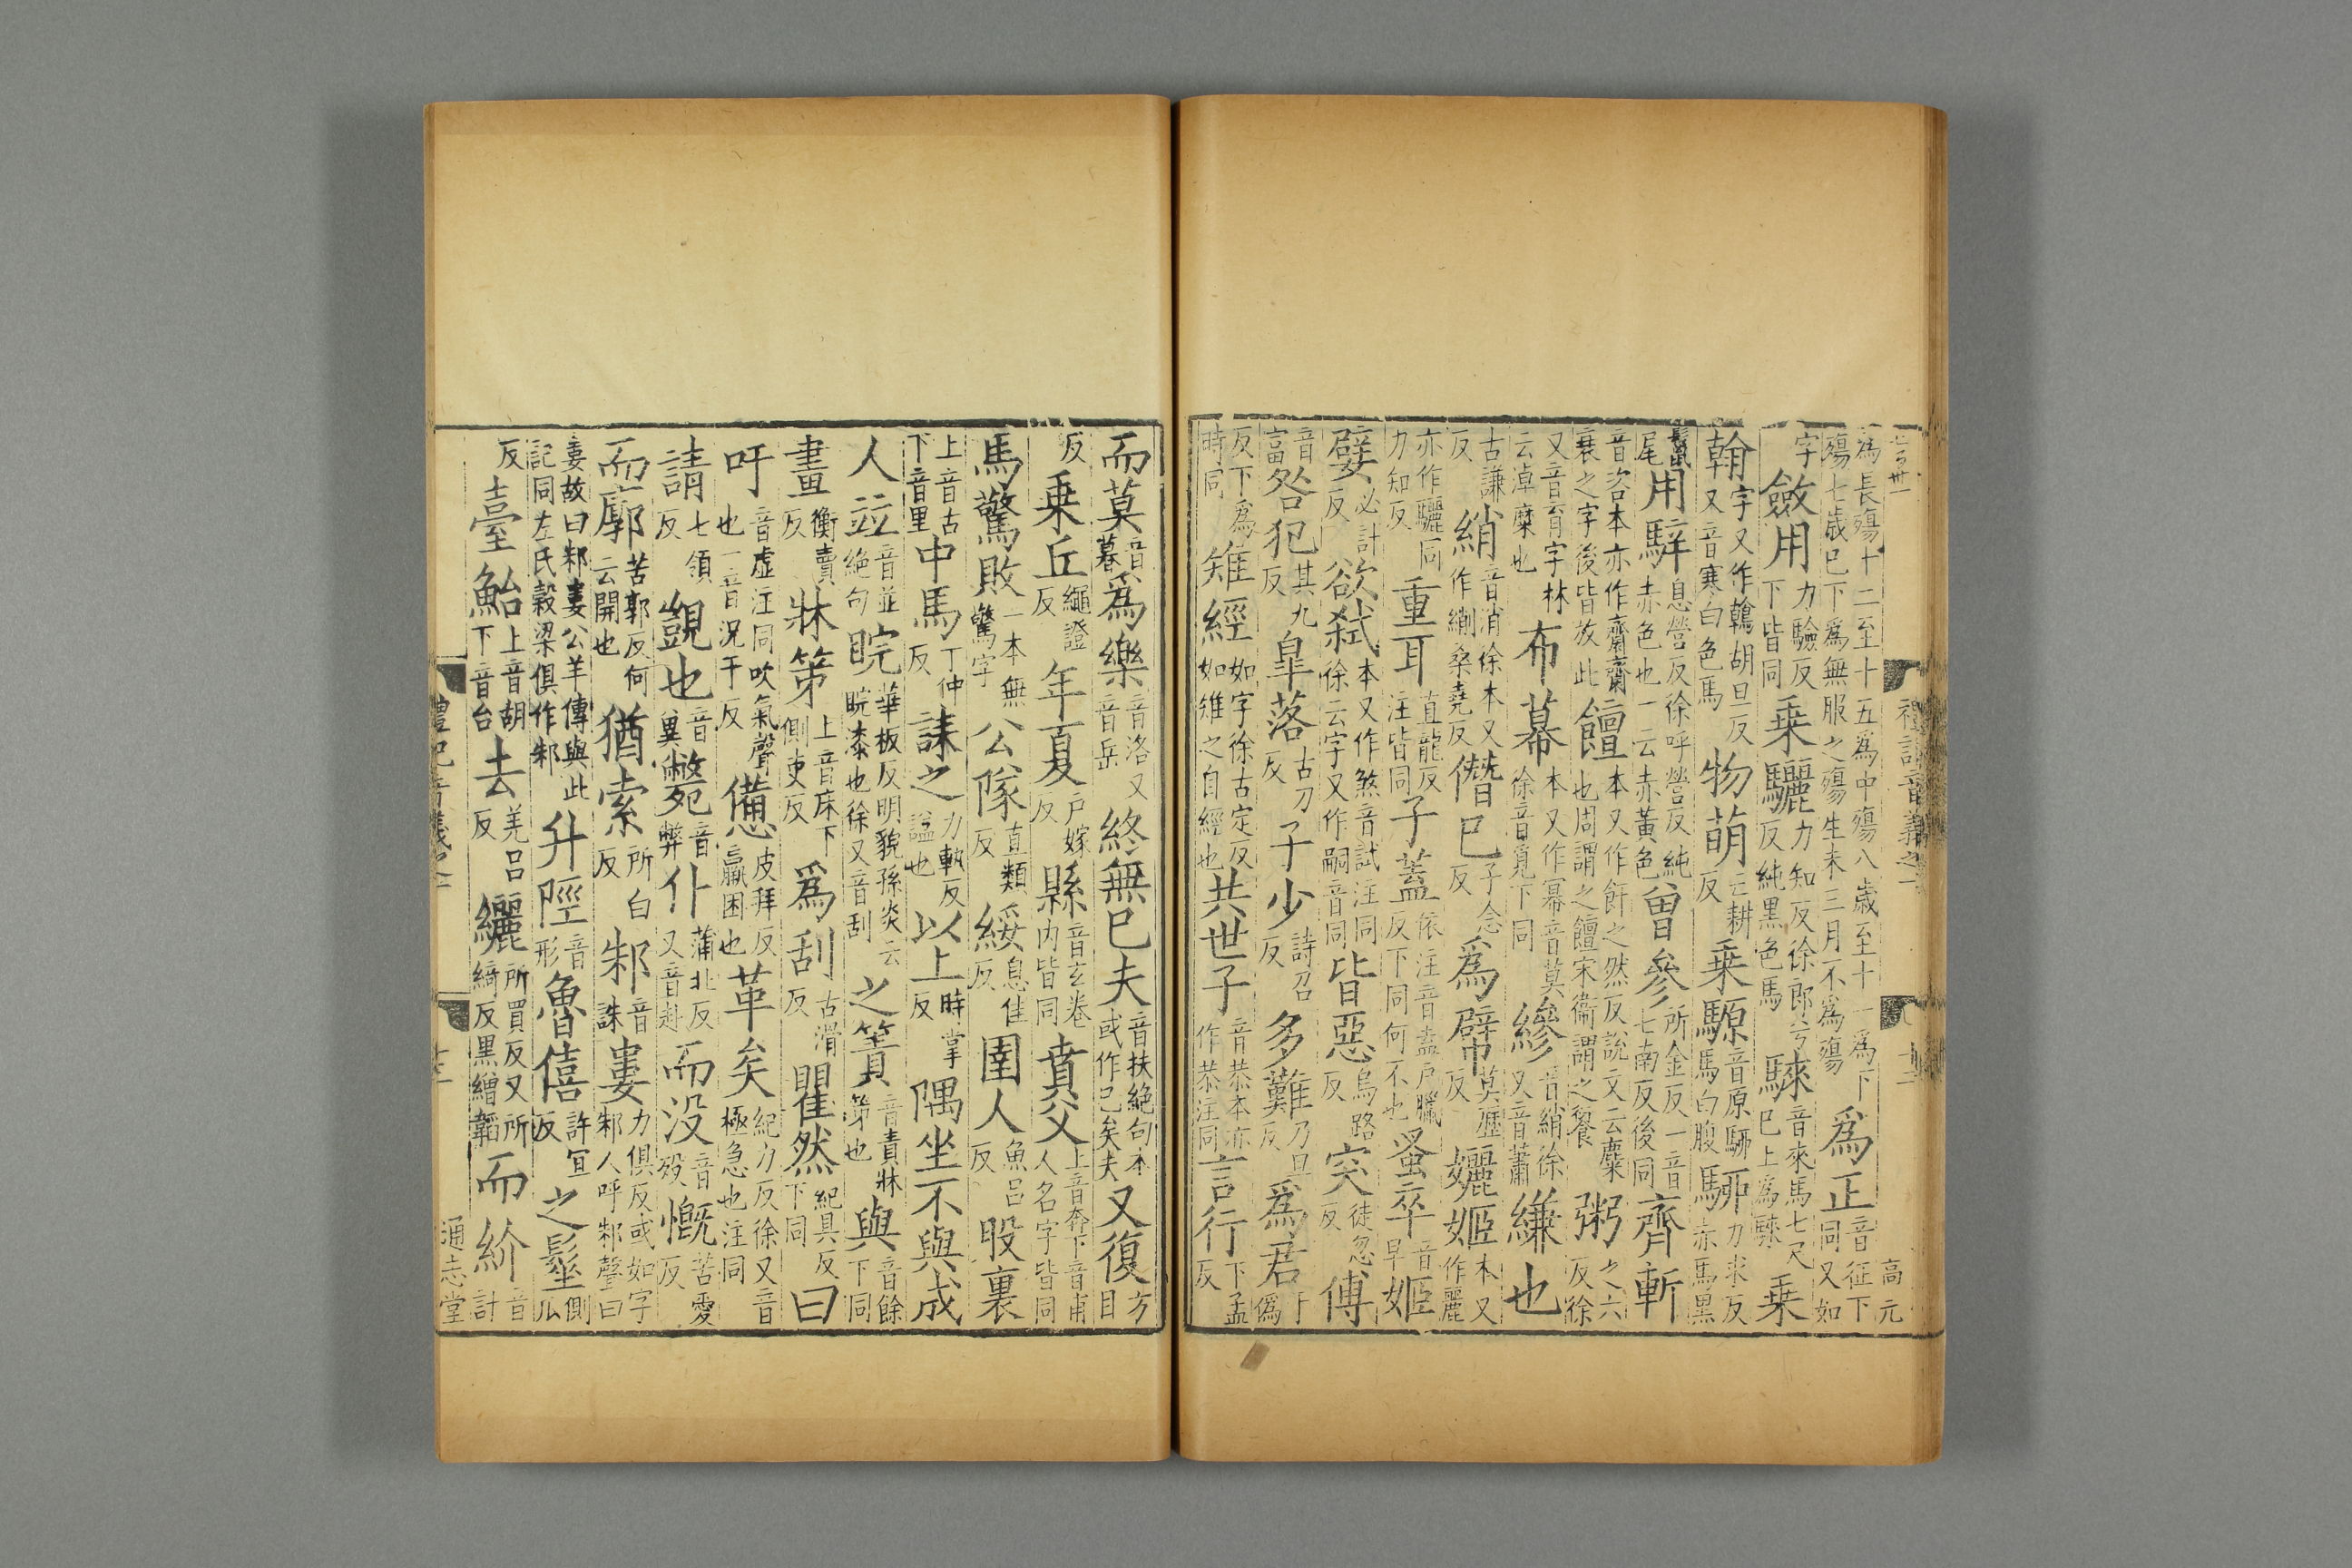 高元
禮記音義之一
十二
為長殤十二至十五為中殤八歲至十一為下殤七歲巳下為無服之殤生未三月不為殤爲正音征下同又如
字斂用力驗反下皆同乗驪力知反徐郎兮反純黒色馬騋音來馬七尺巳上為騋乗
翰字又作鶾胡旦反又音寒白色馬物萌亡耕反乗騵音原駵馬白腹駵力求反赤馬黒
鬛尾用騂息營反徐呼營反純赤色也一云赤黃色曾參所金反一音七南反後同齊斬
音咨本亦作齋齋衰之字後皆放此饘本又作飦之然反説文云麋也周謂之饘宋衞謂之餐粥之六反徐
又音育字林云淖糜也布幕本又作幂音莫徐音覓下同縿音綃徐又音蕭縑也
古謙反綃音消徐本又作䌃桑堯反僭巳子念反爲幦莫歷反孋姬本又作麗
亦作驪同力知反重耳直龍反注皆同子蓋依注音盍戸臘反下同何不也蚤卒音早姬
嬖必計反欲弑本又作煞音試注同徐云字又作嗣音同皆惡烏路反突徒忽反傅
音富咎犯其九反臯落古刀反子少詩召反多難乃旦反爲君于偽
反下為時同雉經如字徐古定反如雉之自經也共世子音恭本亦作恭注同言行下孟反
而莫音暮爲樂音洛又音岳終無巳夫音扶絶句本或作巳矣夫又復方目
反乗丘繩證反年夏戸嫁反縣音玄卷内皆同賁父上音奔下音甫人名字皆同
馬驚敗一本無驚字公隊直類反綏息隹反圉人魚呂反股裏
上音古下音里中馬丁仲反誄之力軌反謚也以上時掌反隅坐不與成
人竝音並絶句睆華板反明貌孫炎云睆漆也徐又音刮之簀音責牀第也與音餘下同
畫衡賣反牀第上音床下側吏反爲刮古滑反瞿然紀具反下同曰
吁音虛注同吹氣聲也一音況于反憊皮拜反羸困也革矣紀力反徐又音極急也注同
請七領反覬也音兾斃音弊仆蒲北反又音赴而没音歿慨苦愛反
而廓苦郭反何云開也猶索所白反邾音誅婁力俱反或如字邾人呼邾聲曰
婁故曰邾婁公羊傳與此記同左氏穀梁俱作邾升陘音形魯僖許宜反之髽側瓜
反臺鮐上音胡下音台去羌呂反纚所買反又所綺反黒繒韜而紒音計
禮記音義之一
十二
通志堂